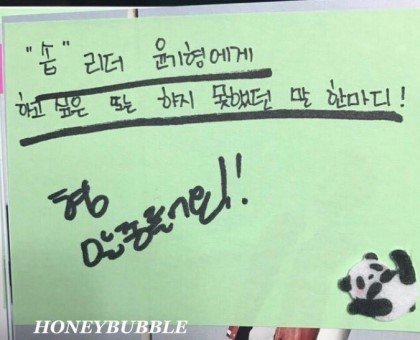 "숍" 리더 윤기형에게
하고 싶은 또는 하지 못했던 말 한마디!
형
HONEYBUBBLE